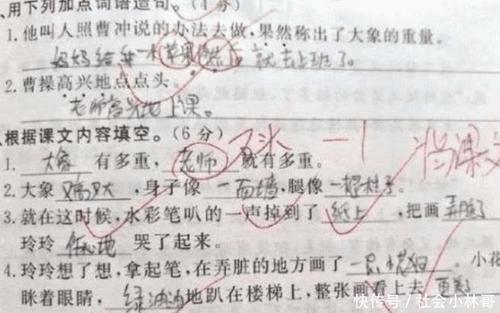 用下列加点词语造句。(4分)
1.他叫人照曹冲说的办法去做,果然称出了大象的重量。
妈妈给 一个苹果 就去上班了。
2.曹操高兴地点点头。
老师高兴地上课。
根据课文内容填空。(6分)
1. 大象 有多重, 老师 就有多重。
-1
2.大象 又高又大 ,身子像 一面墙 ,腿像 一根柱子。
3.就在这时候,水彩笔叭的一声掉到了 纸上 ,把画 弄脏了
玲玲 伤心地 哭了起来。
4.玲玲想了想,拿起笔,在弄脏的地方画了 一只小花狗 。小花
眯着眼睛, 地趴在楼梯上,整张画看上去 更
快传号/社会小林哥